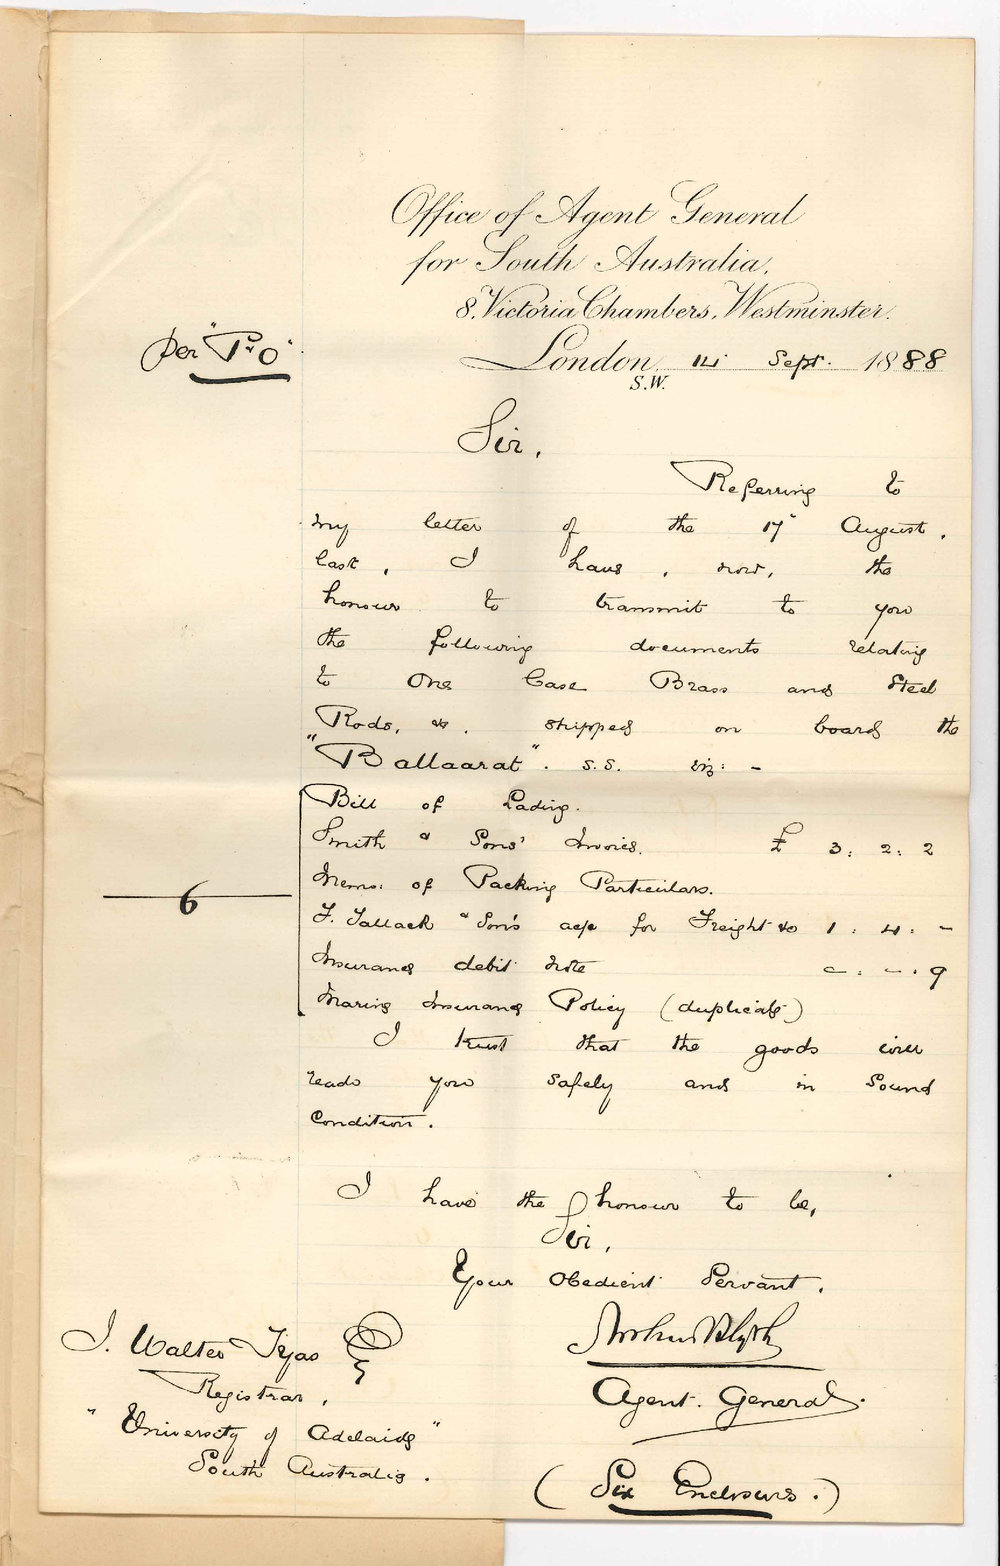 Office of Agent General
for South Australia,
8, Victoria Chambers, Westminster.
per "P & O"
London, 14 Sept. 1888
S.W.
Sir,
Referring to
my letter of the 17" August,
last, I have, now, the
honour to transmit to you
the following documents relating
to One Case Brass and Steel
Rods, &c. shipped on board the
"Ballaarat". S.S. viz: -
Bill of Lading.
Smith & Sons' Invoice. £ 3: 2: 2
6
Memo: of Packing Particulars.
F. Tallack & Son's a/c for Freight &c 1: 4: -
Insurance debit note -: -: 9
Marine Insurance Policy (duplicate)
I trust that the goods will
reach you safely and in Sound
Condition.
I have the honour to be,
Sir,
Your Obedient Servant,
Arthur Blyth
Agent. General.
J. Walter Tyas Esq
Registrar,
"University of Adelaide"
South Australia.
(Six Enclosures.)